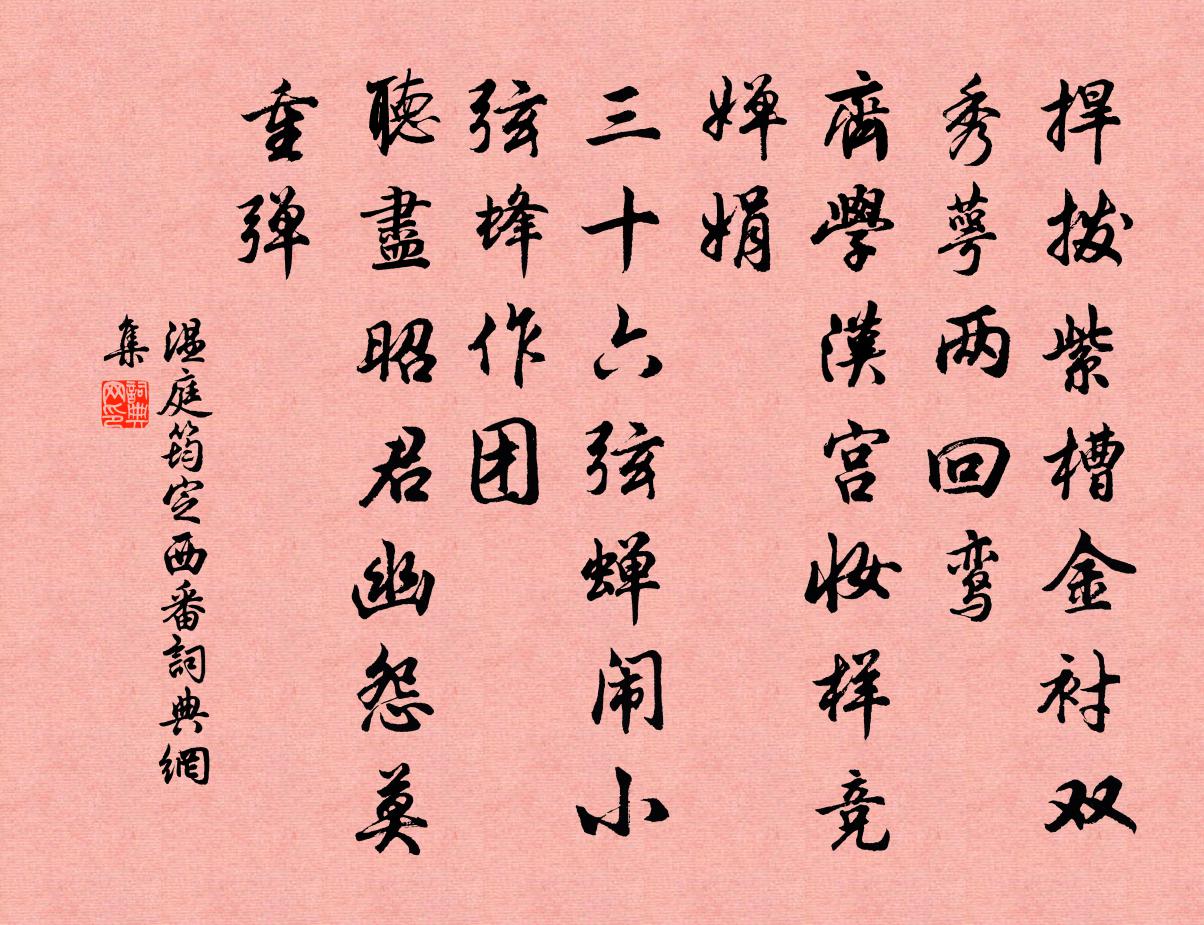 捍拨紫槽金衬双
秀萼两回鸾
齊學漢宫妆样竞
婵娟
三十六弦蝉闹小
弦蜂作团
聽盡昭君幽怨莫
重弹
温庭筠定西番詞典網
集
詞典网印